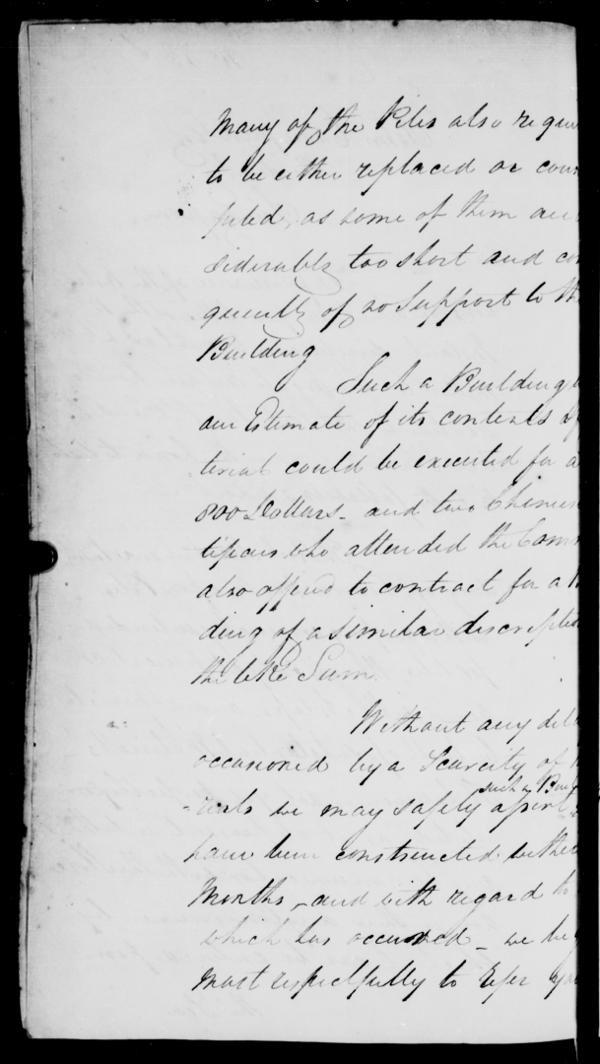 Many of the Piles also requi
to be either replaced or coun
pited, as some of them are
siderably too short and con
quently of no Support to th
Building
Such a Building
our Estimate of its contents
terial could be executed for a
800 Dollars - and two Chines
tificers who attended the Com
also offered to contract for a B
ding of a similar discriptio
the like Sum.
Without any dela
occasioned by a Scarcity of
such a Buil
-rials we may safely assert
have been constructed within
Months - and with regard to
which has occurred - we beg
most respectfully to refer you